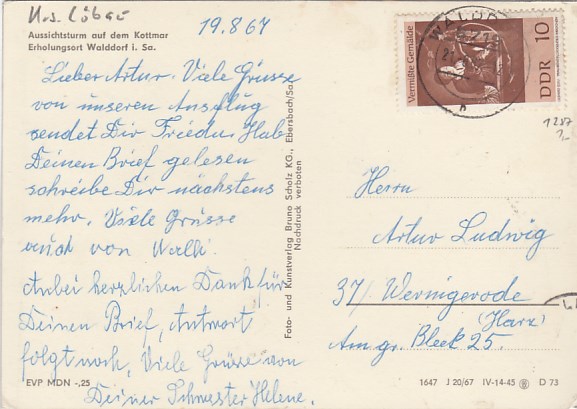 Krs. Löbau
19.8.67
Aussichtsturm auf dem Kottmar
Erholungsort Walddorf i. Sa.
Lieber Artur. Viele Grüsse
von unseren Ausflug
sendet Dir Friedu. Hab
Deinen Brief gelesen
schreibe Dir nächstens
mehr. Viele Grüsse
auch von Walli.
Anbei herzlichen Dank für
Deinen Brief, Antwort
folgt noch, Viele Grüsse von
Deiner Schwester Helene.
EVP MDN -,25
Foto- und Kunstverlag Bruno Scholz KG., Ebersbach/Sa.
Nachdruck verboten
WALDD
Vermißte Gemälde
DDR 10
1287
Herrn
Artur Ludwig
37/ Wernigerode
(Harz)
Am gr. Bleek 25.
1647 J 20/67 IV-14-45 D 73